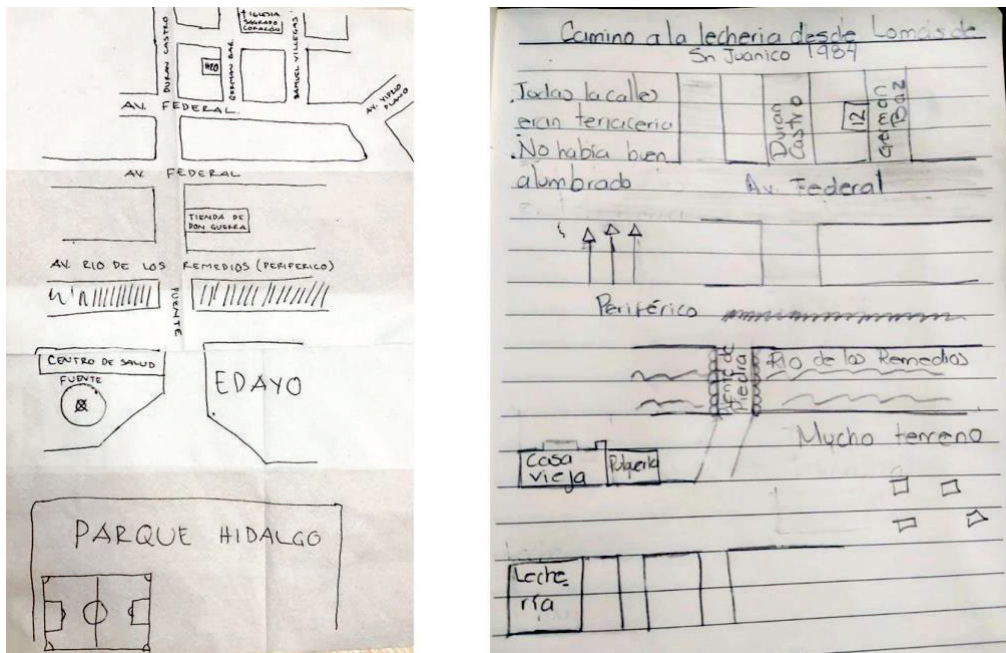 † IGLESIA
SAGRADO
CORAZÓN
DURAN CASTRO
GERMAN BAZ
SAMUEL VILLEGAS
#20
AV. FEDERAL
AV. VIPLIO
PLANO
AV. FEDERAL
TIENDA DE
DON GUERRA
AV. RIO DE LOS REMEDIOS (PERIFERICO)
PUENTE
CENTRO DE SALUD
FUENTE
EDAYO
PARQUE HIDALGO
Camino a la lecheria desde Lomas de
Sn Juanico 1984
.Todas la calles
eran terraceria
.No habia buen
alumbrado
Duran
Castro
12
German
Baz
Av. Federal
Periférico
Puente de
Piedra
Rio de los Remedios
Mucho terreno
Casa
vieja
Pulqueria
Leche-
ría